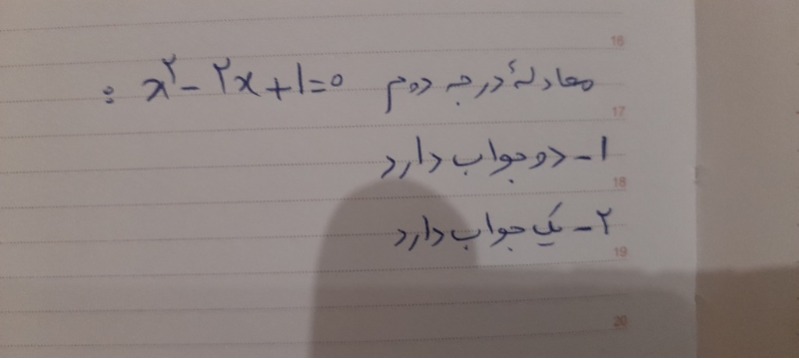 16
معادلهٔ درجه دوم x²-۲x+۱=۰ :
17
۱- دو جواب دارد
18
۲- یک جواب دارد
19
20